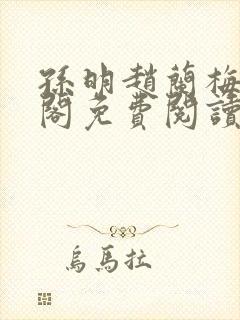 孫明趙蘭梅
閣免費閱讀
烏馬拉